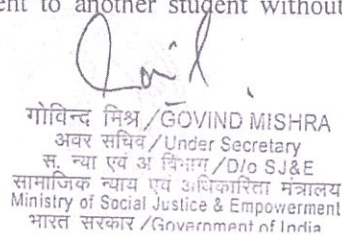 ent to another student without
गोविन्द मिश्र/GOVIND MISHRA
अवर सचिव/Under Secretary
स. न्या एवं अ विभाग/D/o SJ&E
सामाजिक न्याय एवं अधिकारिता मंत्रालय
Ministry of Social Justice & Empowerment
भारत सरकार/Government of India